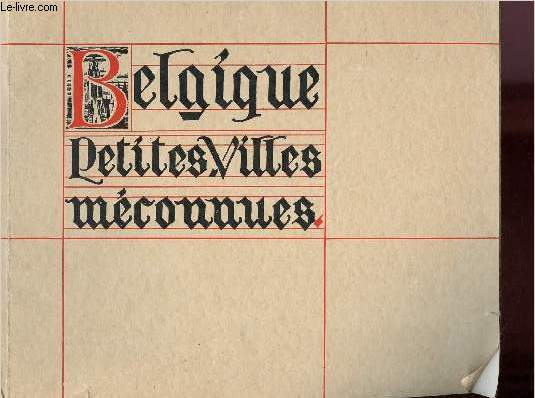 Le-livre.com
Belgique
Petites Villes
méconnues.